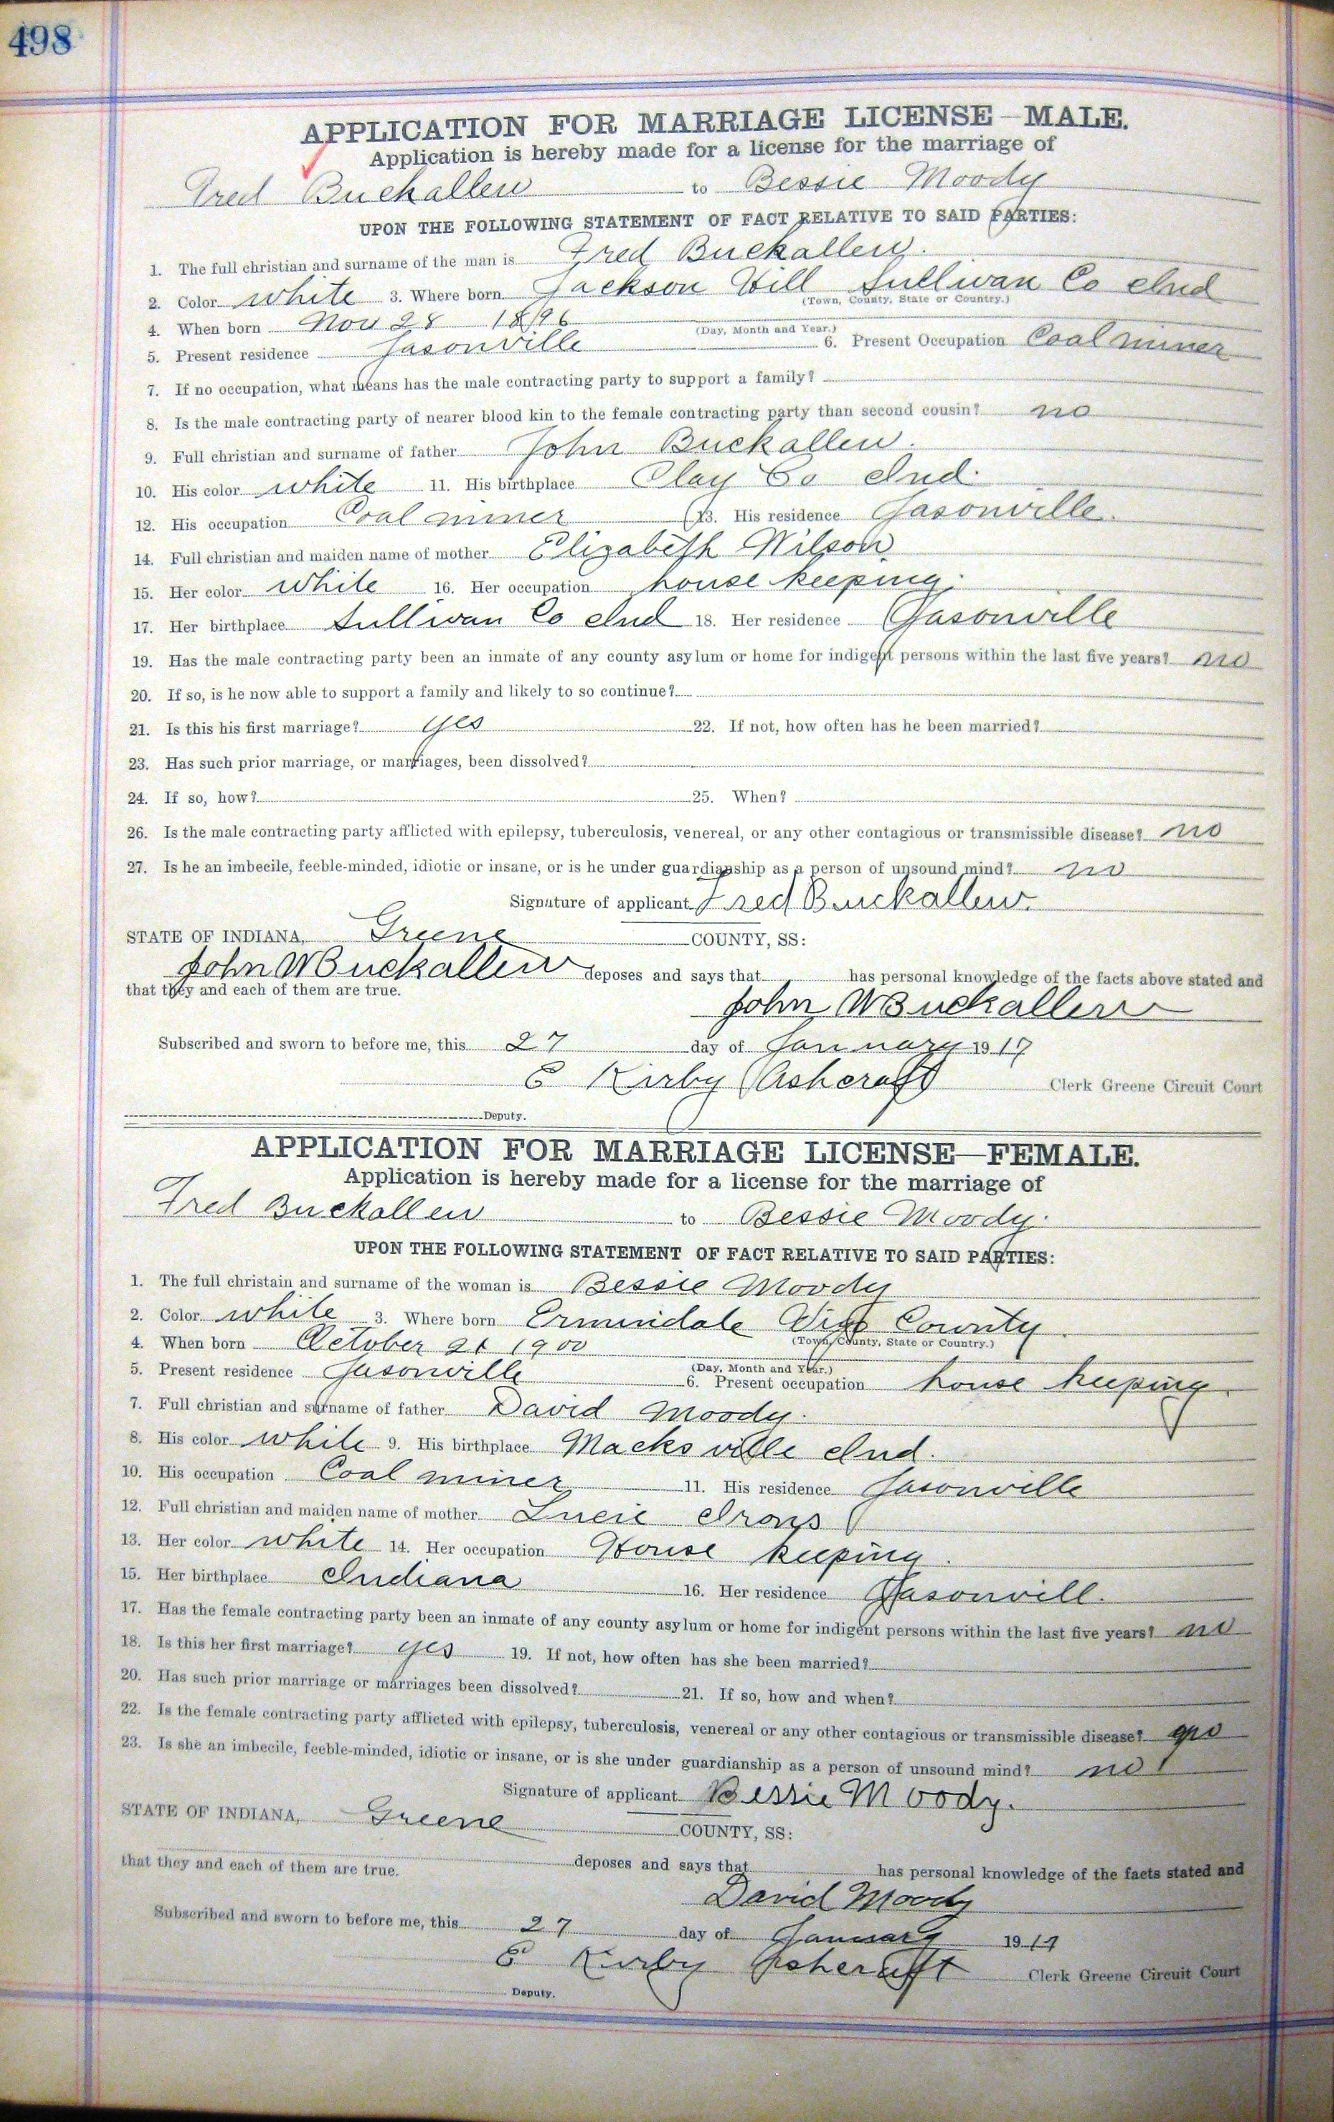 498
APPLICATION FOR MARRIAGE LICENSE—MALE.
Application is hereby made for a license for the marriage of
Fred Buckallew to Bessie Moody
UPON THE FOLLOWING STATEMENT OF FACT RELATIVE TO SAID PARTIES:
1. The full christian and surname of the man is Fred Buckallew.
2. Color white 3. Where born Jackson Hill Sullivan Co Ind
(Town, County, State or Country.)
4. When born Nov 28 1896
(Day, Month and Year.)
5. Present residence Jasonville 6. Present Occupation Coal miner
7. If no occupation, what means has the male contracting party to support a family?
8. Is the male contracting party of nearer blood kin to the female contracting party than second cousin? no
9. Full christian and surname of father John Buckallew.
10. His color white 11. His birthplace Clay Co Ind.
12. His occupation Coal miner 13. His residence Jasonville.
14. Full christian and maiden name of mother Elizabeth Wilson
15. Her color white 16. Her occupation house keeping.
17. Her birthplace Sullivan Co Ind 18. Her residence Jasonville
19. Has the male contracting party been an inmate of any county asylum or home for indigent persons within the last five years? no
20. If so, is he now able to support a family and likely to so continue?
21. Is this his first marriage? yes 22. If not, how often has he been married?
23. Has such prior marriage, or marriages, been dissolved?
24. If so, how? 25. When?
26. Is the male contracting party afflicted with epilepsy, tuberculosis, venereal, or any other contagious or transmissible disease? no
27. Is he an imbecile, feeble-minded, idiotic or insane, or is he under guardianship as a person of unsound mind? no
Signature of applicant Fred Buckallew.
STATE OF INDIANA, Greene COUNTY, SS:
John W Buckallew deposes and says that has personal knowledge of the facts above stated and
that they and each of them are true.
John W Buckallew
Subscribed and sworn to before me, this 27 day of January 1917
E Kirby Ashcraft Clerk Greene Circuit Court
Deputy.
APPLICATION FOR MARRIAGE LICENSE—FEMALE.
Application is hereby made for a license for the marriage of
Fred Buckallew to Bessie Moody.
UPON THE FOLLOWING STATEMENT OF FACT RELATIVE TO SAID PARTIES:
1. The full christain and surname of the woman is Bessie Moody
2. Color white 3. Where born Ermindale Vigo County.
(Town, County, State or Country.)
4. When born October 21 1900
(Day, Month and Year.)
5. Present residence Jasonville 6. Present occupation house keeping.
7. Full christian and surname of father David Moody.
8. His color white 9. His birthplace Macksville Ind.
10. His occupation Coal miner 11. His residence Jasonville
12. Full christian and maiden name of mother Lucie Irons
13. Her color white 14. Her occupation House keeping.
15. Her birthplace Indiana 16. Her residence Jasonvill.
17. Has the female contracting party been an inmate of any county asylum or home for indigent persons within the last five years? no
18. Is this her first marriage? yes 19. If not, how often has she been married?
20. Has such prior marriage or marriages been dissolved? 21. If so, how and when?
22. Is the female contracting party afflicted with epilepsy, tuberculosis, venereal or any other contagious or transmissible disease? no
23. Is she an imbecile, feeble-minded, idiotic or insane, or is she under guardianship as a person of unsound mind? no
Signature of applicant Bessie Moody.
STATE OF INDIANA, Greene COUNTY, SS:
deposes and says that has personal knowledge of the facts stated and
that they and each of them are true.
David Moody
Subscribed and sworn to before me, this 27 day of January 1917
E Kirby Ashcraft Clerk Greene Circuit Court
Deputy.